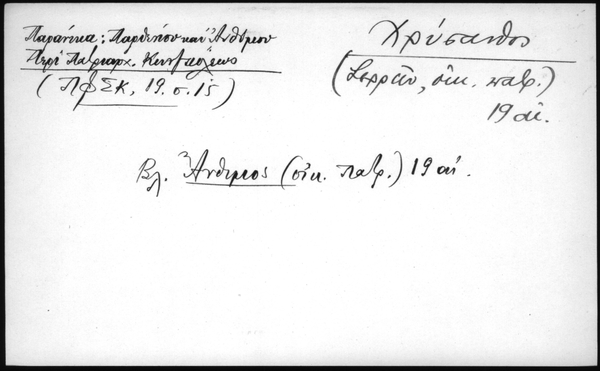 Παρανίκα: Παρθενίου καὶ Ἀνθίμου
Περὶ Πατριαρχ. Κων/πόλεως
(ΠΦΣΚ, 19. σ. 15)
Χρύσανθος
(Σερρῶν, οἰκ. πατρ.)
19 αἰ.
Βλ. Ἄνθιμος (οἰκ. πατρ.) 19 αἰ.